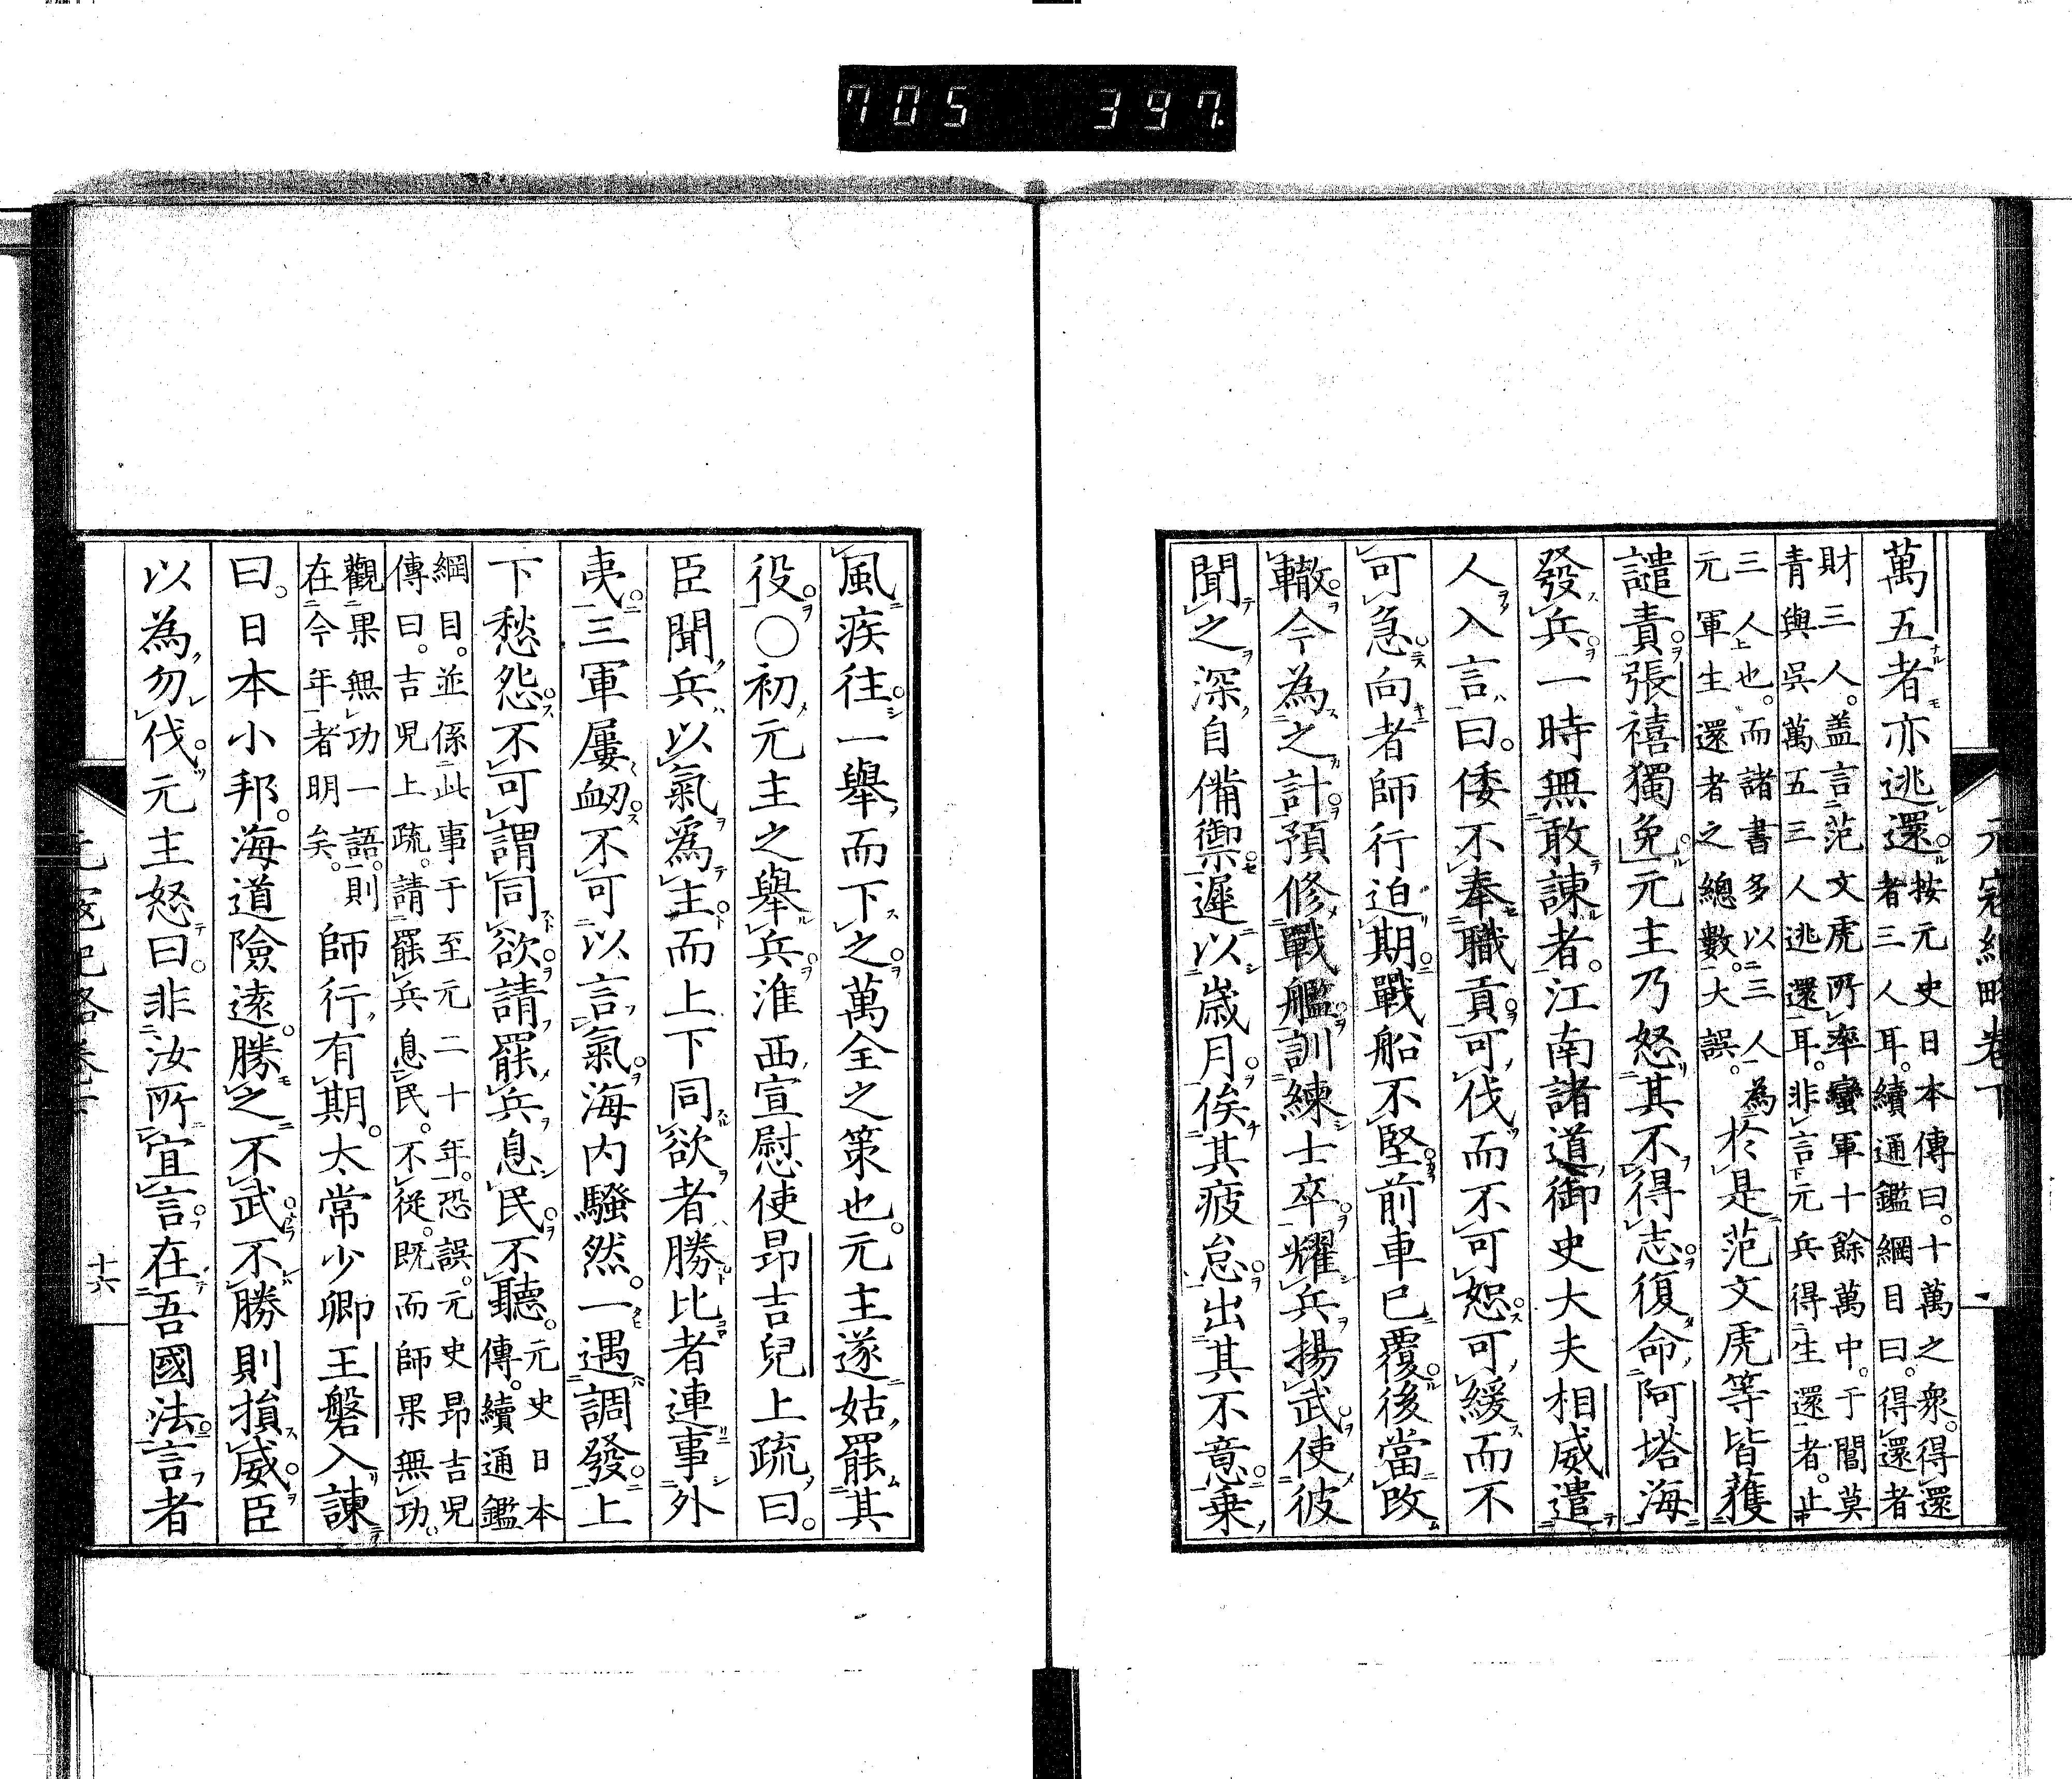 705 397.
元寇紀略卷下
萬五者亦逃還按元史日本傳曰。十萬之衆。得還者三人耳。續通鑑綱目曰。得還者
財三人。盖言范文虎所率蠻軍十餘萬中。于閶莫青與吳萬五三人逃還耳。非言元兵得生還者。止
三人也。而諸書多以三人為元軍生還者之總數。大誤。於是范文虎等皆獲
譴責。張禧獨免。元主乃怒其不得志。復命阿塔海
發兵。一時無敢諫者。江南諸道御史大夫相威遣
人入言曰。倭不奉職貢可伐而不可恕可緩而不
可急向者師行迫期戰船不堅前車已覆後當改
轍今為之計預修戰艦訓練士卒耀兵揚武使彼
聞之深自備禦遲以歲月俟其疲怠出其不意乗
風疾往一舉而下之萬全之策也。元主遂姑罷其
役。○初元主之舉兵淮西宣慰使昂吉兒上疏曰。
臣聞兵以氣為主而上下同欲者勝比者連事外
夷三軍屢衂不可以言氣海内騷然。一遇調發上
下愁怨不可謂同欲請罷兵息民不聽。元史日本傳。續通鑑
綱目。並係此事于至元二十年。恐誤。元史昂吉兒傳曰。吉兒上疏。請罷兵息民。不從。既而師果無功。
觀果無功一語。則在今年者明矣。師行有期。太常少卿王磐入諫
曰。日本小邦。海道險遠。勝之不武不勝則損威。臣
以為勿伐。元主怒曰。非汝所宜言。在吾國法言者
十六